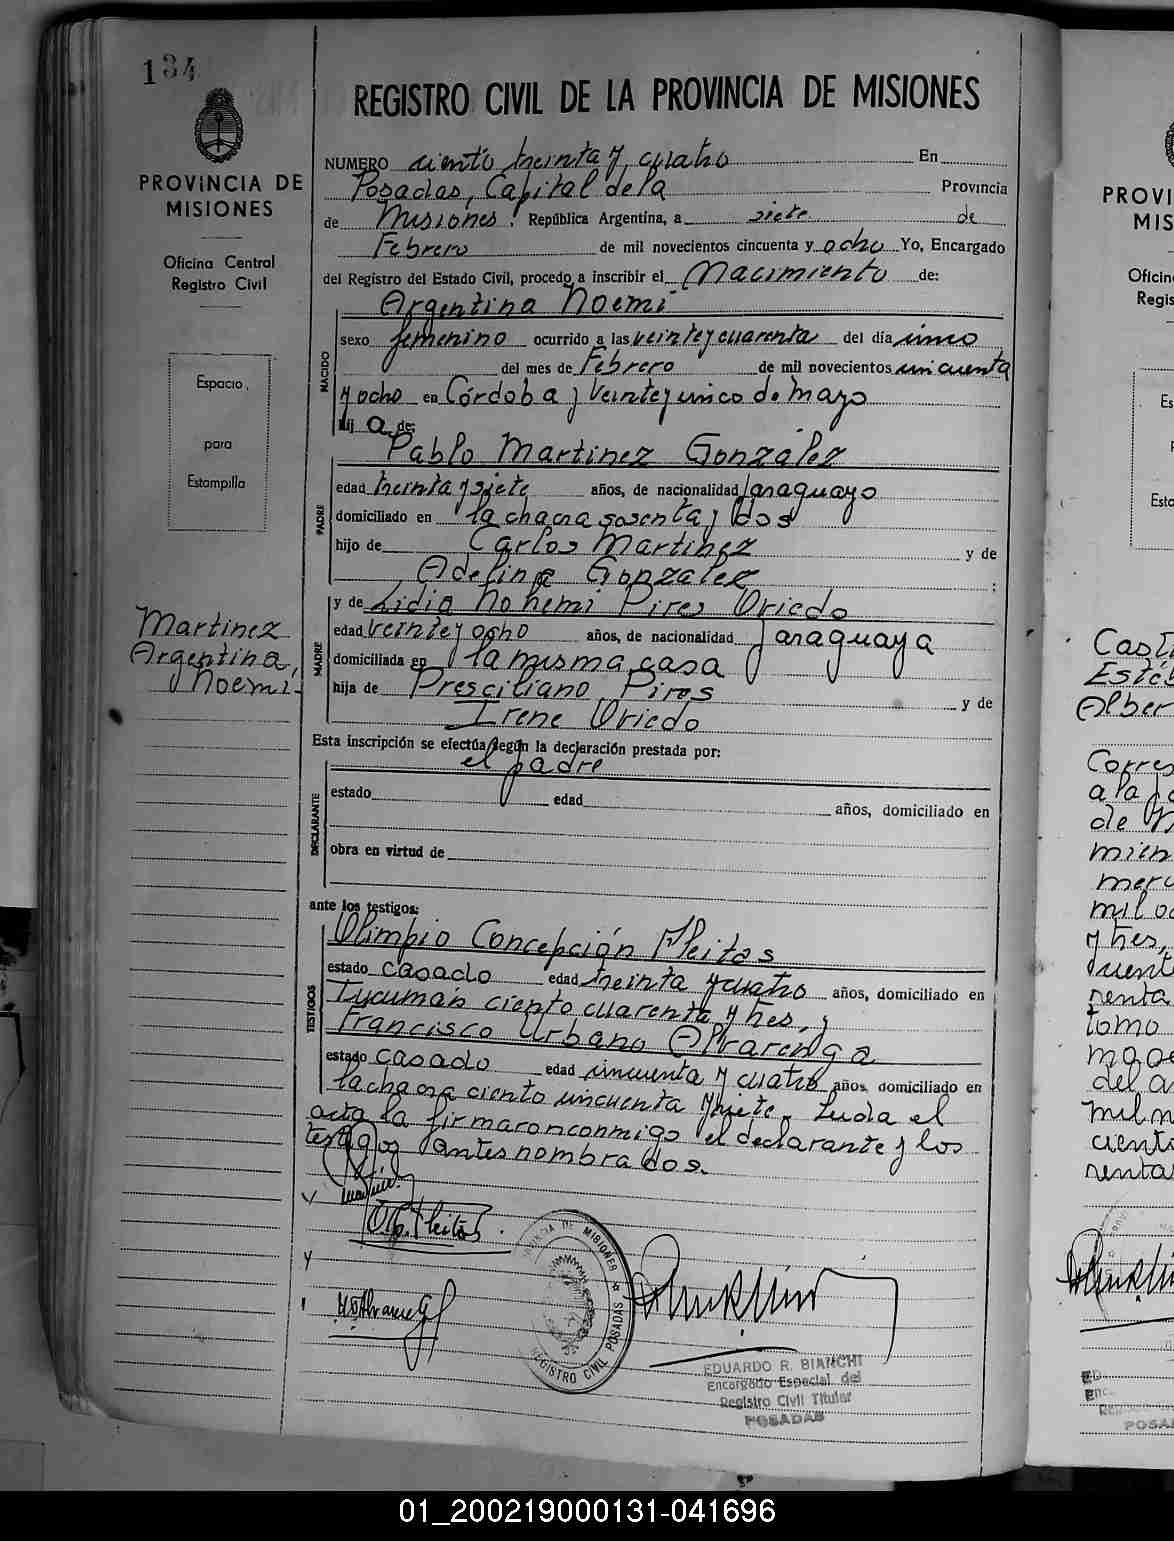 134
REGISTRO CIVIL DE LA PROVINCIA DE MISIONES
PROVINCIA DE
MISIONES
Oficina Central
Registro Civil
Espacio
para
Estampilla
Martinez
Argentina,
Noemi.
NUMERO ciento treinta y cuatro En
Posadas, Capital de la Provincia
de Misiones. República Argentina, a siete de
Febrero de mil novecientos cincuenta y ocho Yo, Encargado
del Registro del Estado Civil, procedo a inscribir el Nacimiento de:
Argentina Noemi
NACIDO
sexo femenino ocurrido a las veinte y cuarenta del día cinco
del mes de Febrero de mil novecientos cincuenta
y ocho en Córdoba y veinte y cinco de mayo
hij a de:
Pablo Martinez González
PADRE
edad treinta y siete años, de nacionalidad paraguayo
domiciliado en la chacra sesenta y dos
hijo de Carlos Martinez y de
Adelina Gonzalez ;
MADRE
y de Lidia Nohemi Pires Oviedo
edad veinte y ocho años, de nacionalidad paraguaya
domiciliada en la misma casa
hija de Presciliano Pires y de
Irene Oviedo
Esta inscripción se efectúa según la declaración prestada por:
el padre
DECLARANTE
estado edad años, domiciliado en
obra en virtud de
ante los testigos:
Olimpio Concepción Fleitas
TESTIGOS
estado casado edad treinta y cuatro años, domiciliado en
Tucumán ciento cuarenta y tres, y
Francisco Urbano Alvarenga
estado casado edad cincuenta y cuatro años, domiciliado en
la chacra ciento cincuenta y siete. Leida el
acta la firmaron conmigo el declarante y los
testigos antes nombrados.
O. C. Fleitas
PROVINCIA DE MISIONES
REGISTRO CIVIL POSADAS
EDUARDO R. BIANCHI
Encargado Especial del
Registro Civil Titular
POSADAS
PROVI
MIS
Oficin
Regis
Es
Esta
Casti
Estéb
Alber
Corres
a la pa
de N
mien
meru
mil o
y tres,
cuent
renta
tomo
made
del a
mil n
ciento
renta
POSA
01_200219000131-041696